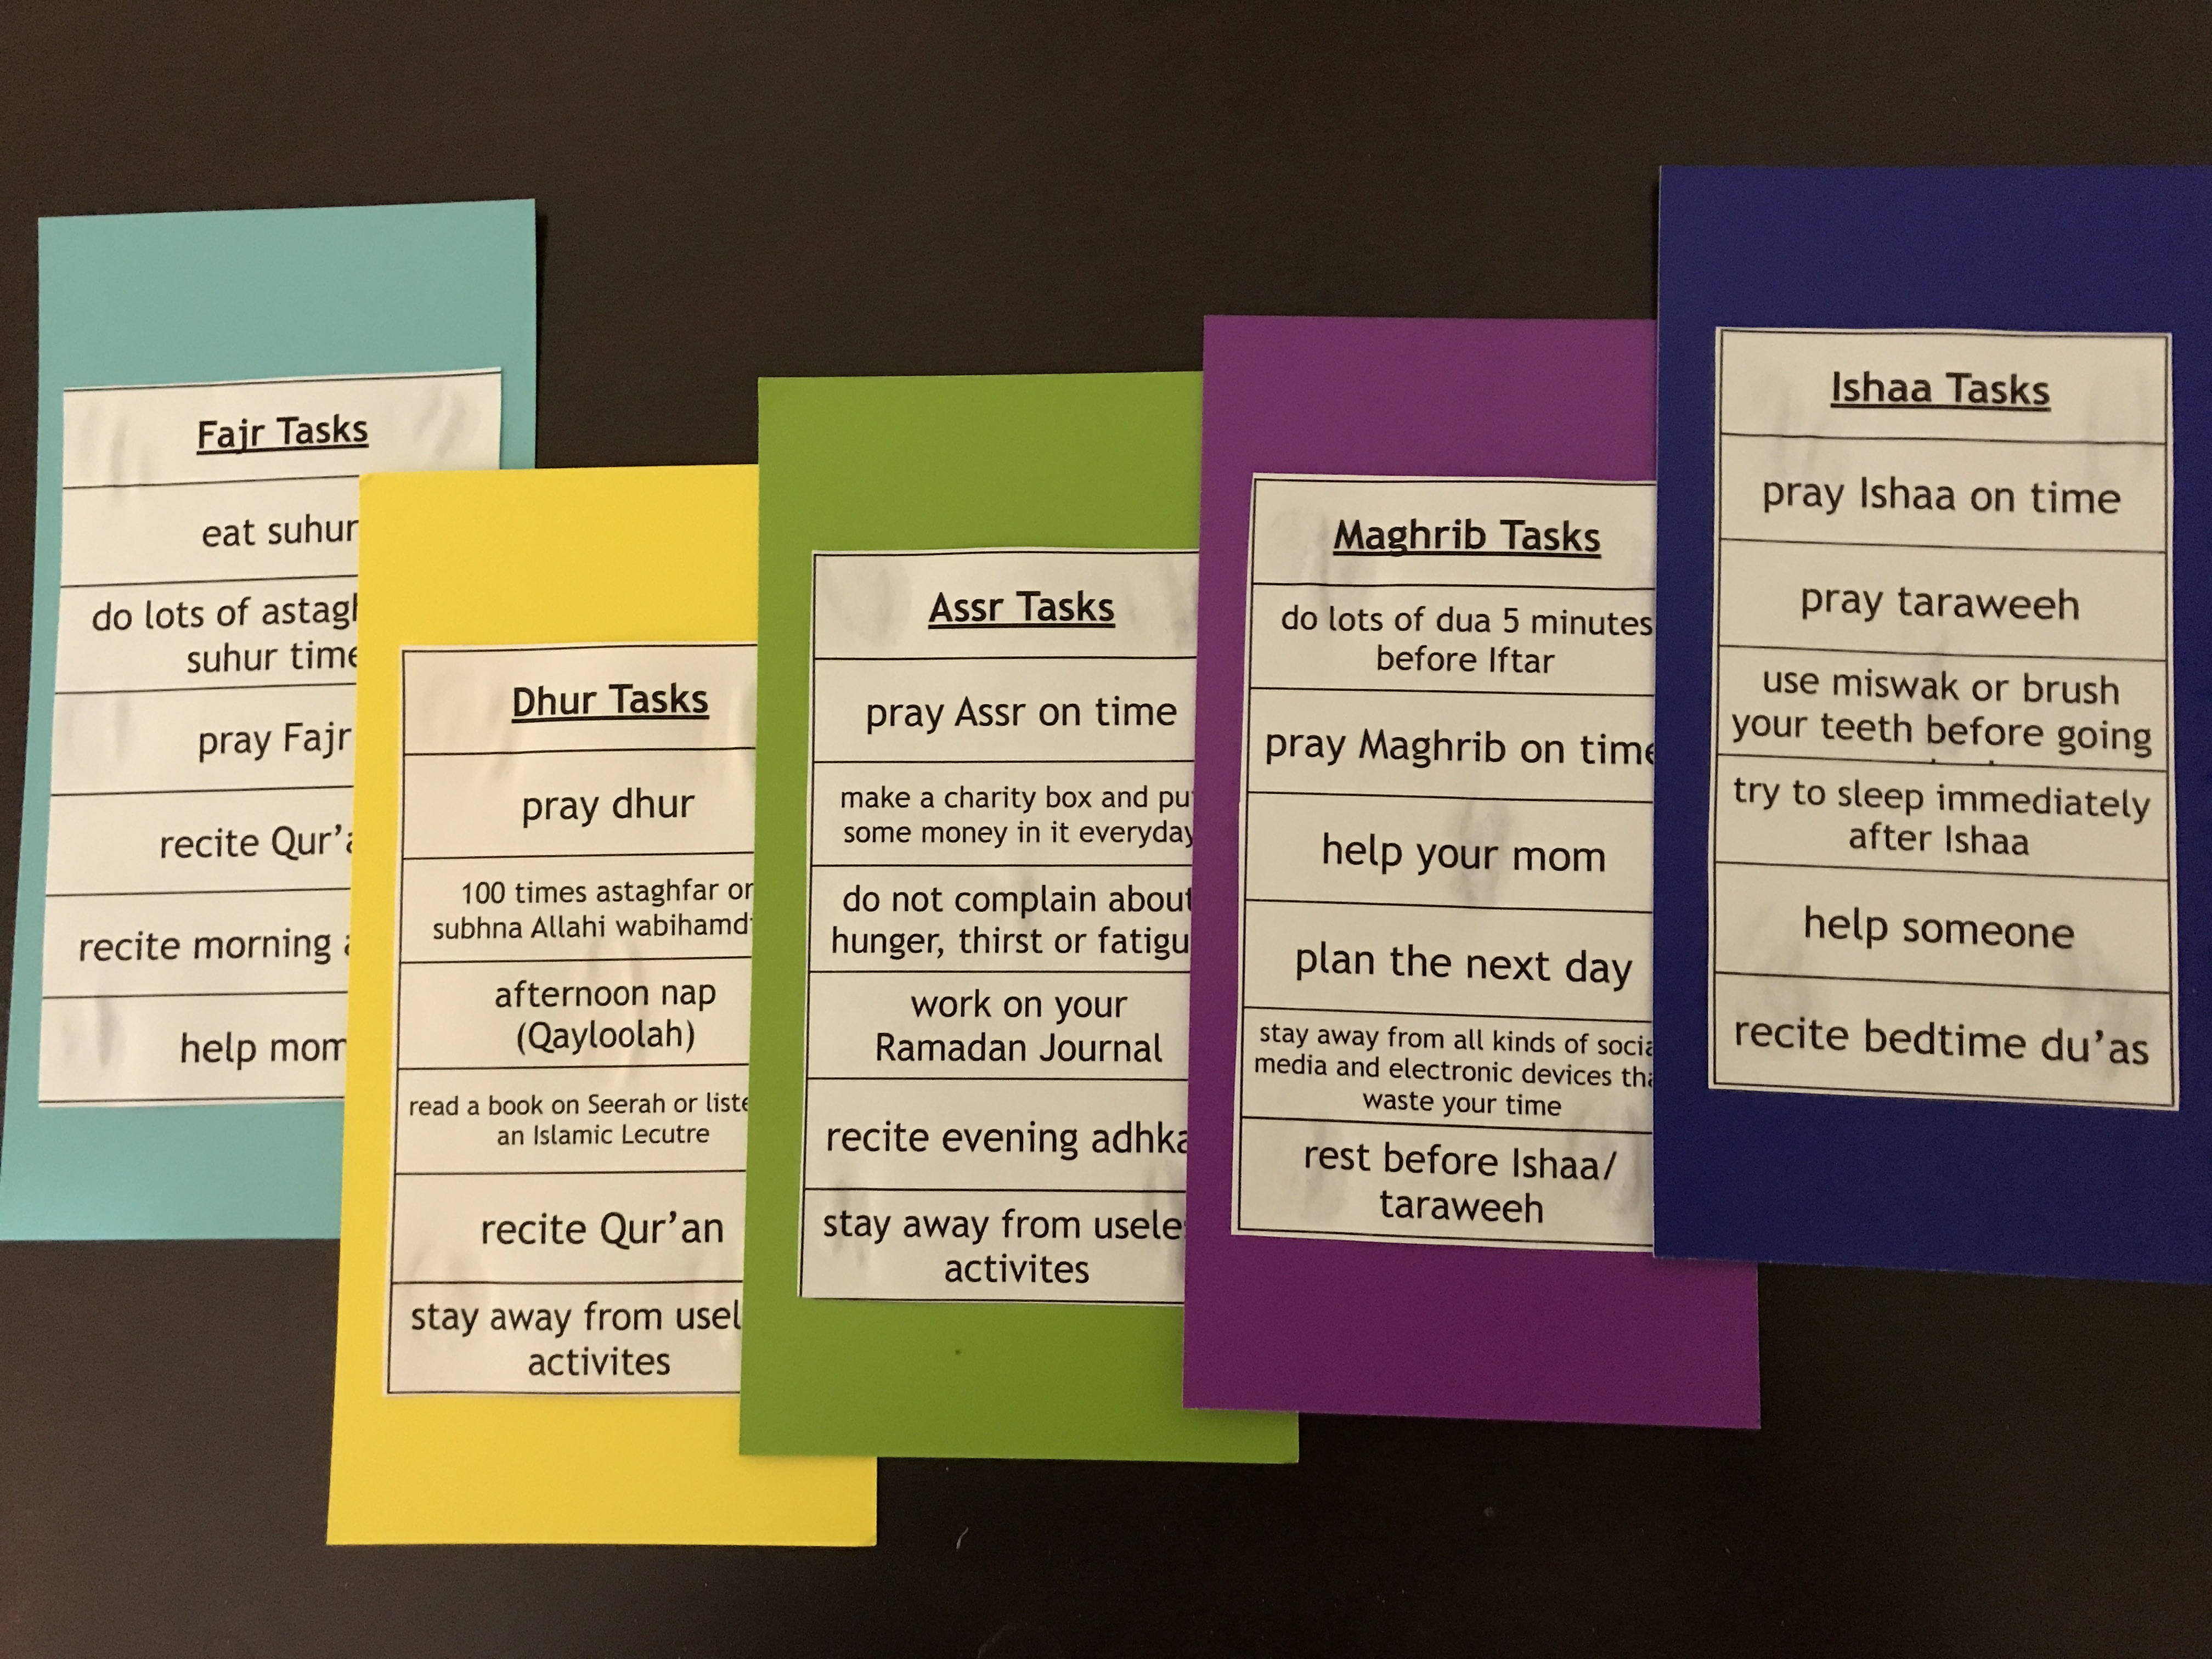 Fajr Tasks
eat suhur
do lots of
suhur time
pray Fajr
recite
recite morning
help mom
Dhur Tasks
pray dhur
100 times astaghfar or
subhna Allahi
afternoon nap
(Qayloolah)
read a book on Seerah or
an Islamic Lecutre
recite Qur'an
stay away from
activites
Assr Tasks
pray Assr on time
make a charity box and
some money in it everyday
do not complain about
hunger, thirst or
work on your
Ramadan Journal
recite evening
stay away from
activites
Maghrib Tasks
do lots of dua 5 minutes
before Iftar
pray Maghrib on time
help your mom
plan the next day
stay away from all kinds of
media and electronic devices
waste your time
rest before Ishaa/
taraweeh
Ishaa Tasks
pray Ishaa on time
pray taraweeh
use miswak or brush
your teeth before going
try to sleep immediately
after Ishaa
help someone
recite bedtime du'as